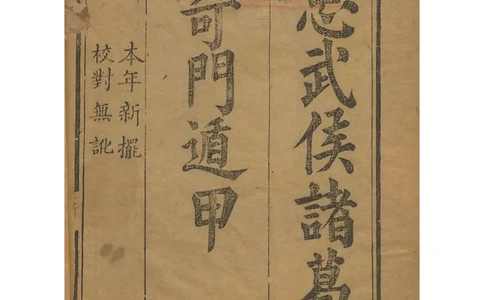 忠武侯諸葛
奇門遁甲
本年新擺
校對無訛